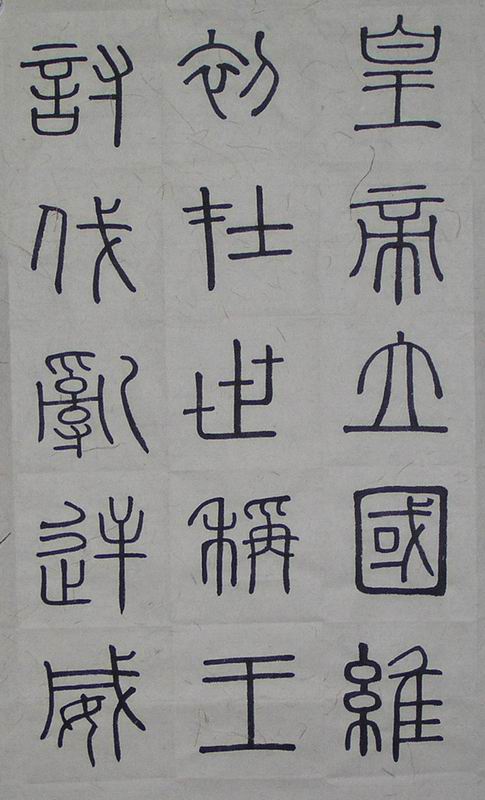 皇帝立國維
初在世稱王
討伐亂逆威